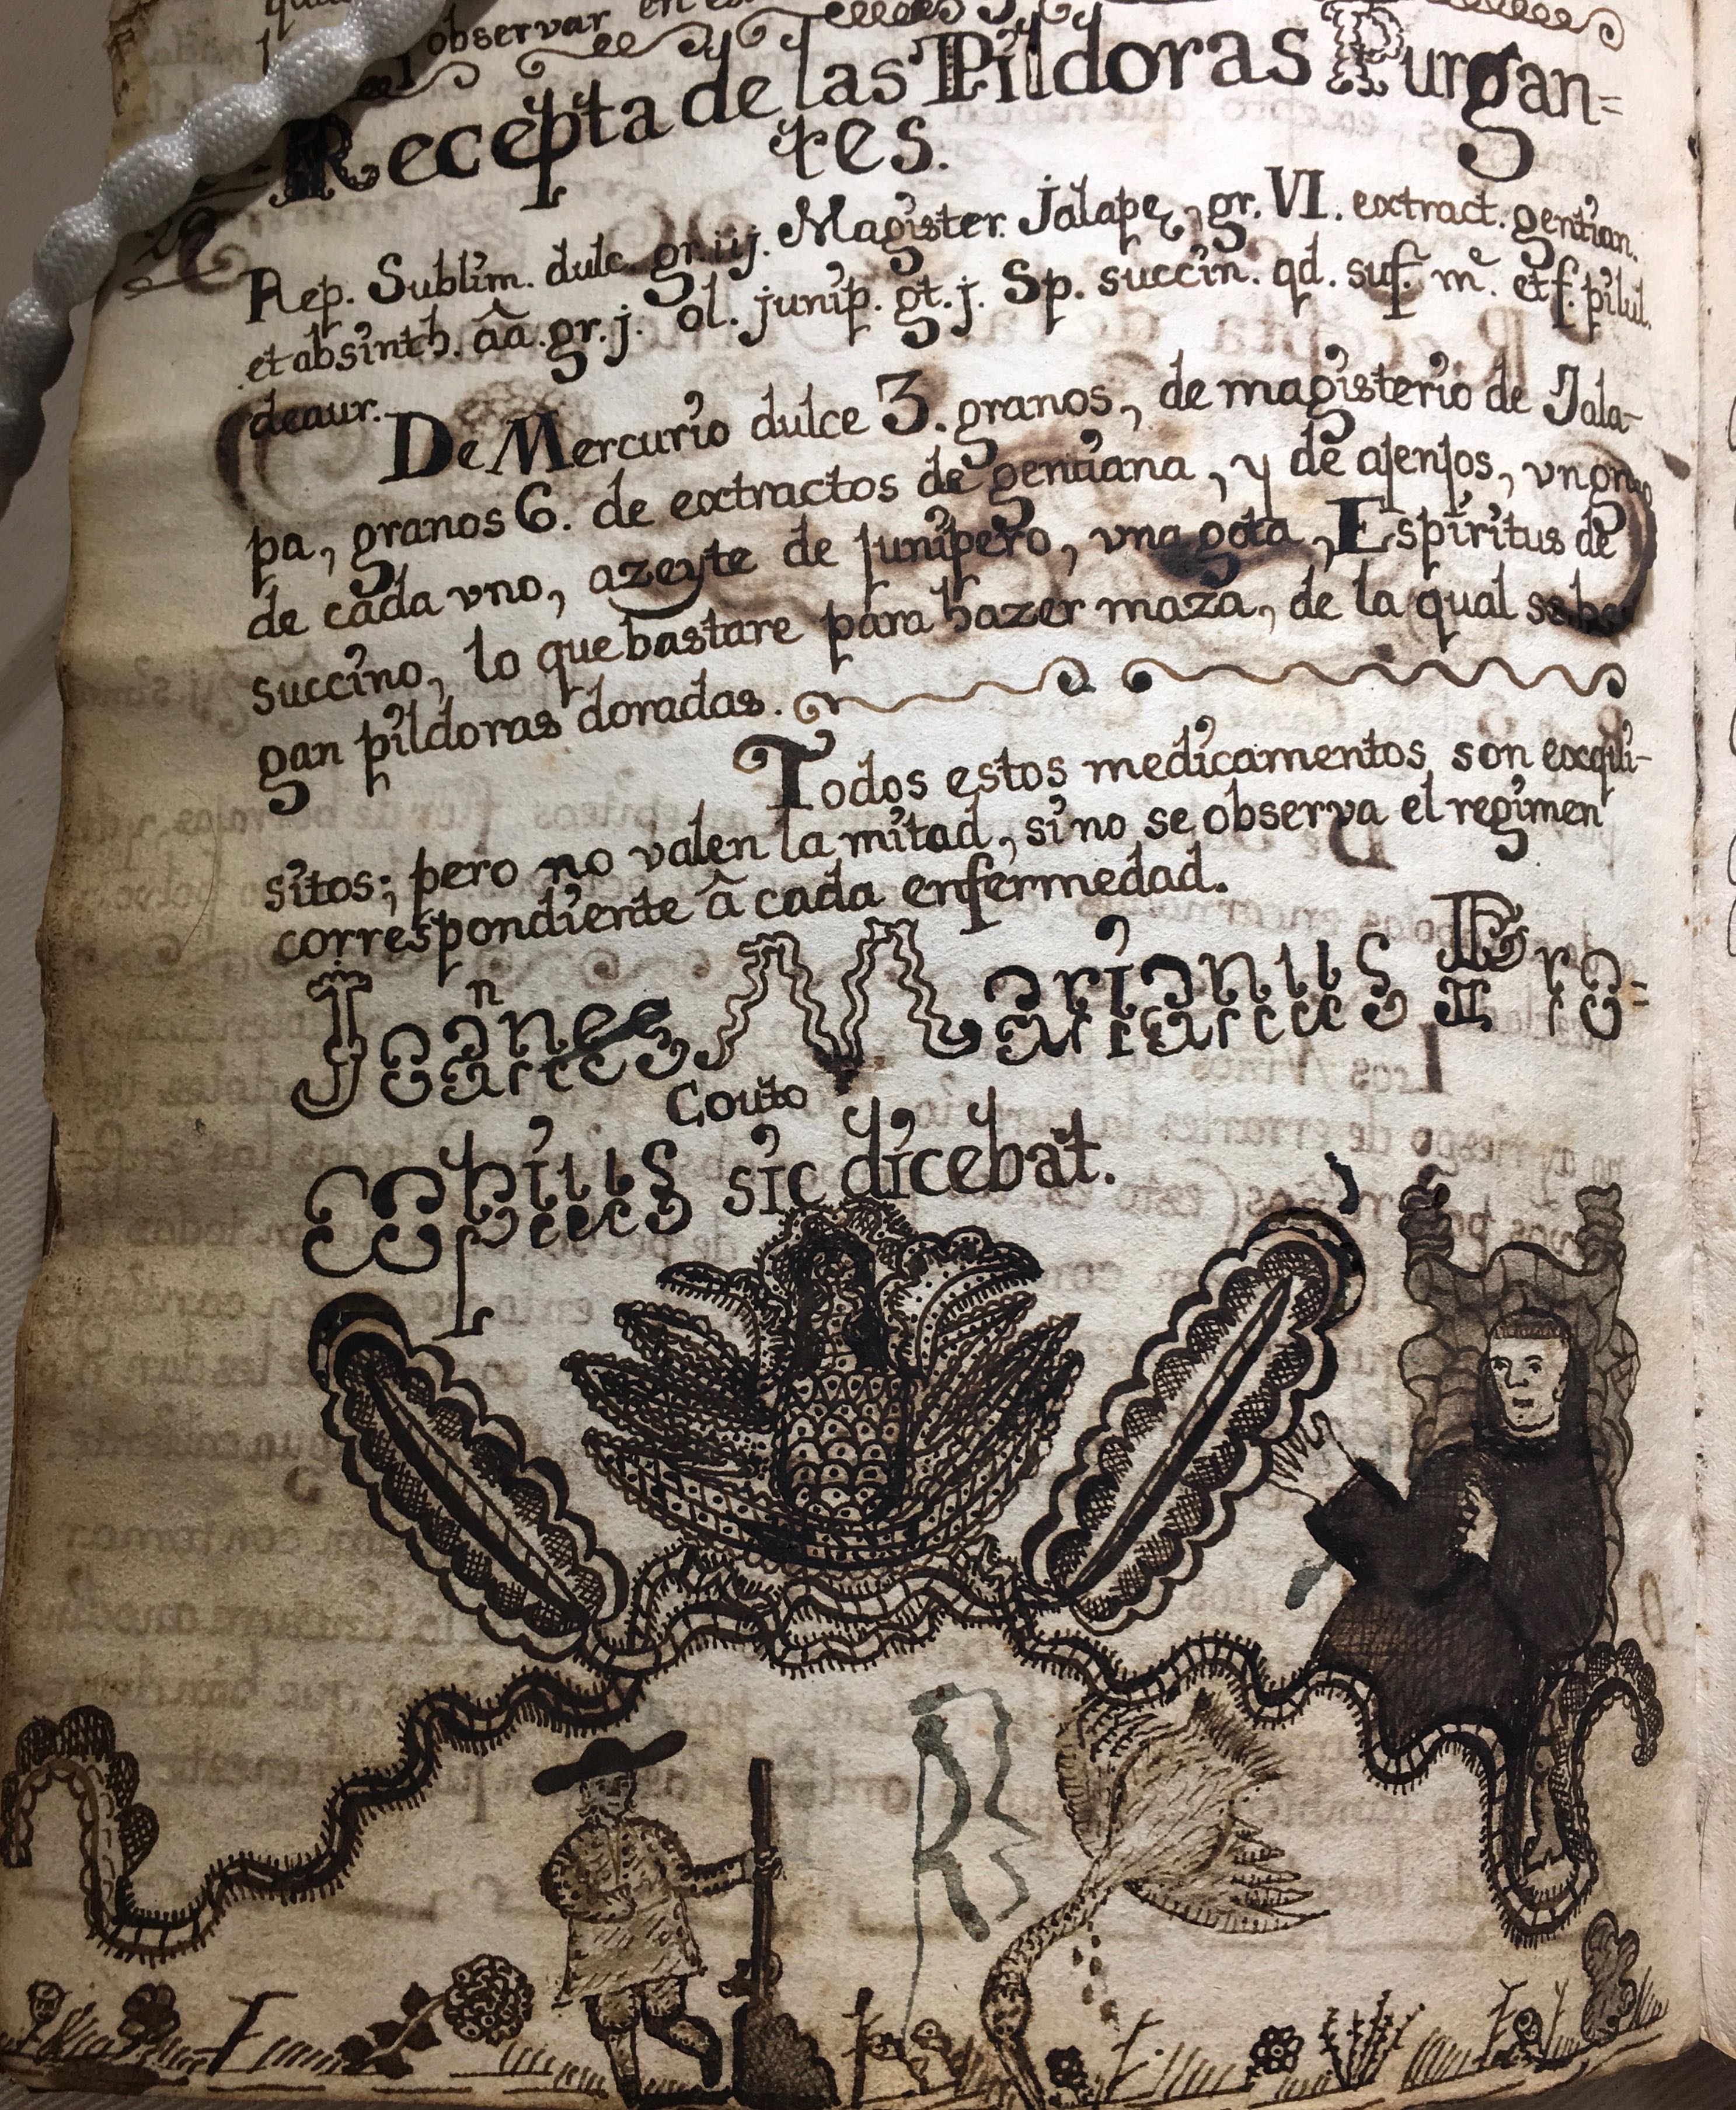 observar en
Recepta de las Pildoras Purgan=
tes.
Rep. Sublim. dulc. gr. iij. Magister. Jalapę, gr. VI. extract. gentian.
et absinth. âa. gr. j. ol. junip. gt. j. Sp. succin. qd. suf. m.e et f. pilul.
deaur.
De Mercurio dulce 3. granos, de magisterio de Jala-
pa, granos 6. de extractos de gentiana, y de ajenjos, vn grano
de cada vno, azeyte de junipero, vna gota, Espiritus de
succino, lo que bastare para hazer maza, de la qual se ha-
gan pildoras doradas.
Todos estos medicamentos son exqui-
sitos; pero no valen la mitad, si no se observa el regimen
correspondiente â cada enfermedad.
Joãnes Marianus Pro=
Couto
copius sic dicebat.